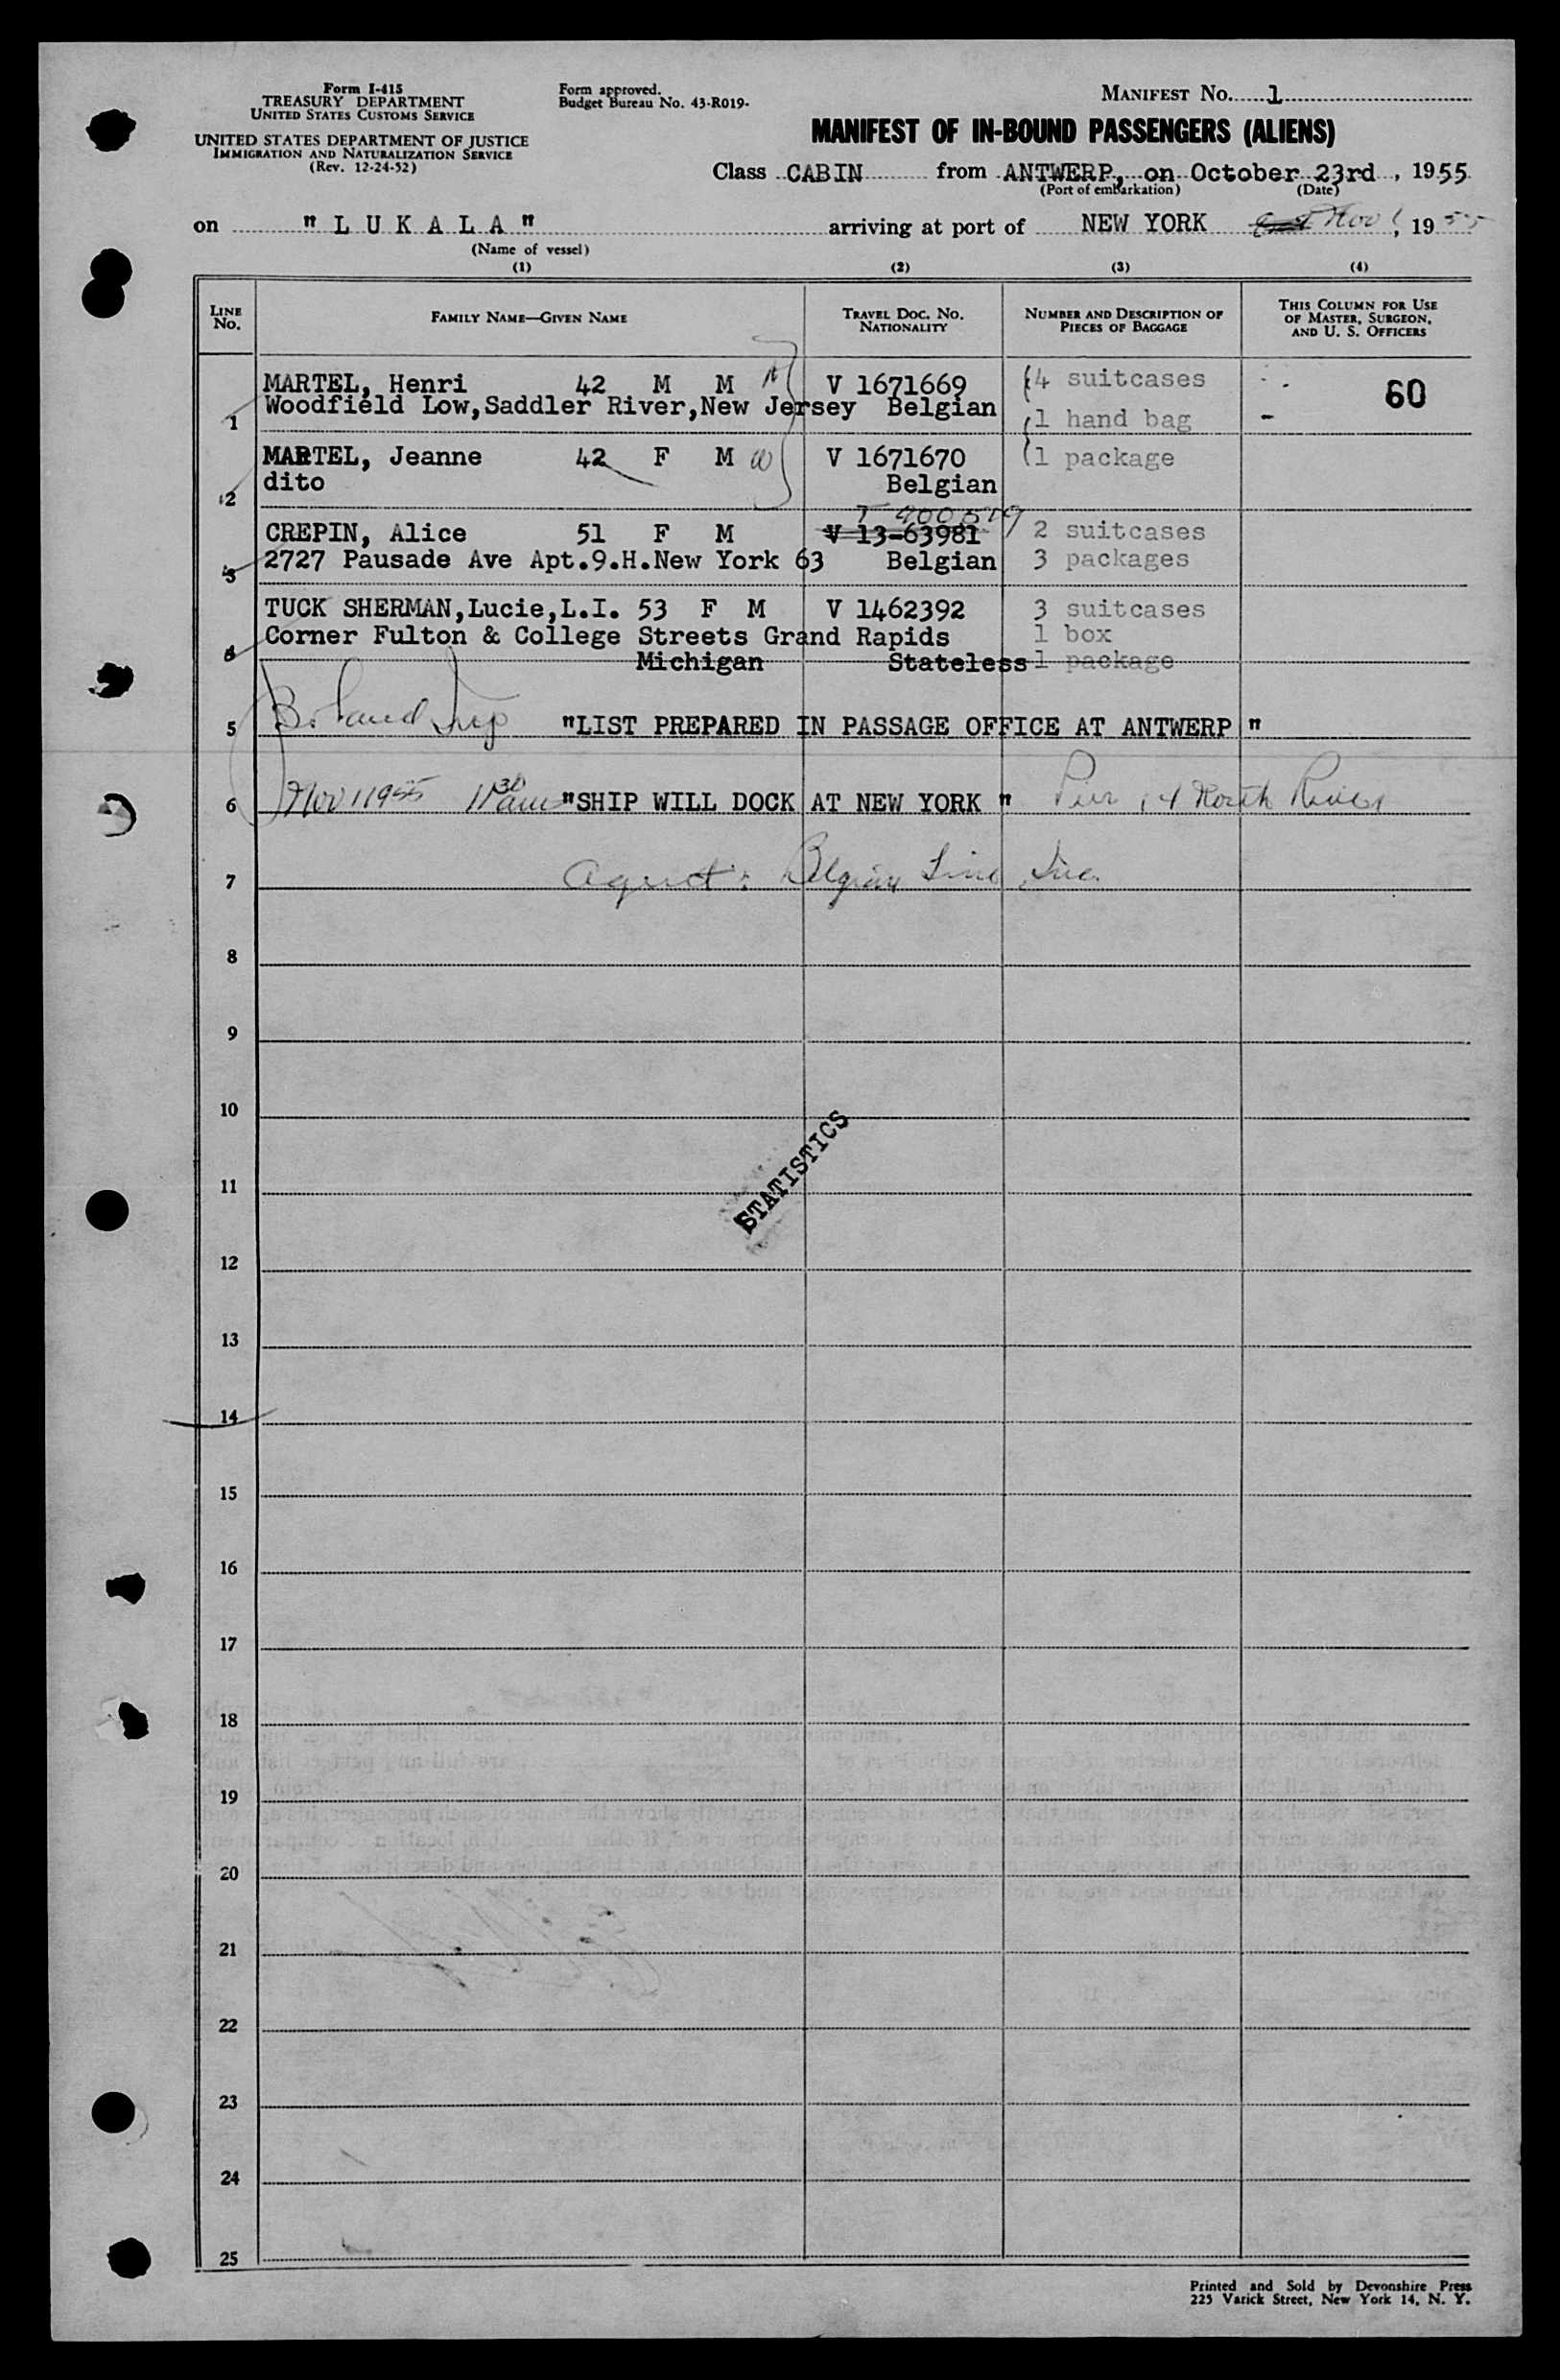 Form I-415
TREASURY DEPARTMENT
UNITED STATES CUSTOMS SERVICE
UNITED STATES DEPARTMENT OF JUSTICE
IMMIGRATION AND NATURALIZATION SERVICE
(Rev. 12-24-52)
Form approved.
Budget Bureau No. 43-R019.
MANIFEST NO. 1
MANIFEST OF IN-BOUND PASSENGERS (ALIENS)
Class CABIN from ANTWERP, on October 23rd, 1955
(Port of embarkation) (Date)
on "LUKALA" arriving at port of NEW YORK Nov 1, 1955
(Name of vessel)
(1) (2) (3) (4)
LINE No. FAMILY NAME—GIVEN NAME TRAVEL DOC. NO. NATIONALITY NUMBER AND DESCRIPTION OF PIECES OF BAGGAGE THIS COLUMN FOR USE OF MASTER, SURGEON, AND U. S. OFFICERS
MARTEL, Henri 42 M M V 1671669 4 suitcases 60
1 Woodfield Low,Saddler River,New Jersey Belgian 1 hand bag
MARTEL, Jeanne 42 F M W V 1671670 1 package
2 dito Belgian
CREPIN, Alice 51 F M V 13-63981 2 suitcases
3 2727 Pausade Ave Apt.9.H.New York 63 Belgian 3 packages
TUCK SHERMAN,Lucie,L.I. 53 F M V 1462392 3 suitcases
4 Corner Fulton & College Streets Grand Rapids 1 box
Michigan Stateless 1 package
5 "LIST PREPARED IN PASSAGE OFFICE AT ANTWERP "
6 Nov 1 1955 11 30 am "SHIP WILL DOCK AT NEW YORK " Pier 14 North River
7 Agent: Belgian Line Inc.
8
9
10
STATISTICS
11
12
13
14
15
16
17
18
19
20
21
22
23
24
25
Printed and Sold by Devonshire Press
225 Varick Street, New York 14, N. Y.